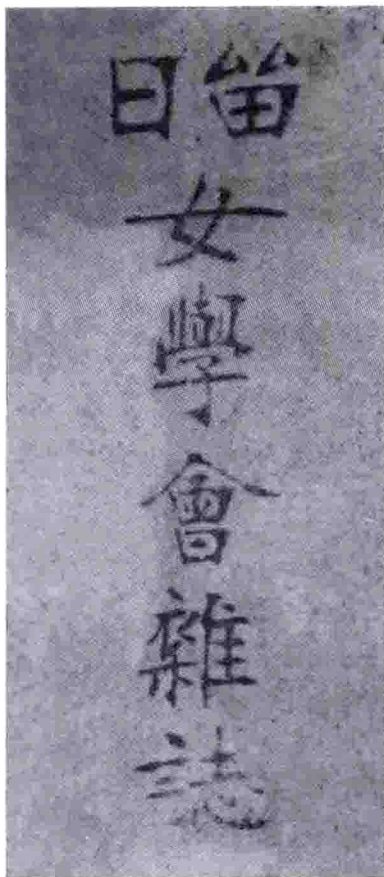 留日女學會雜誌